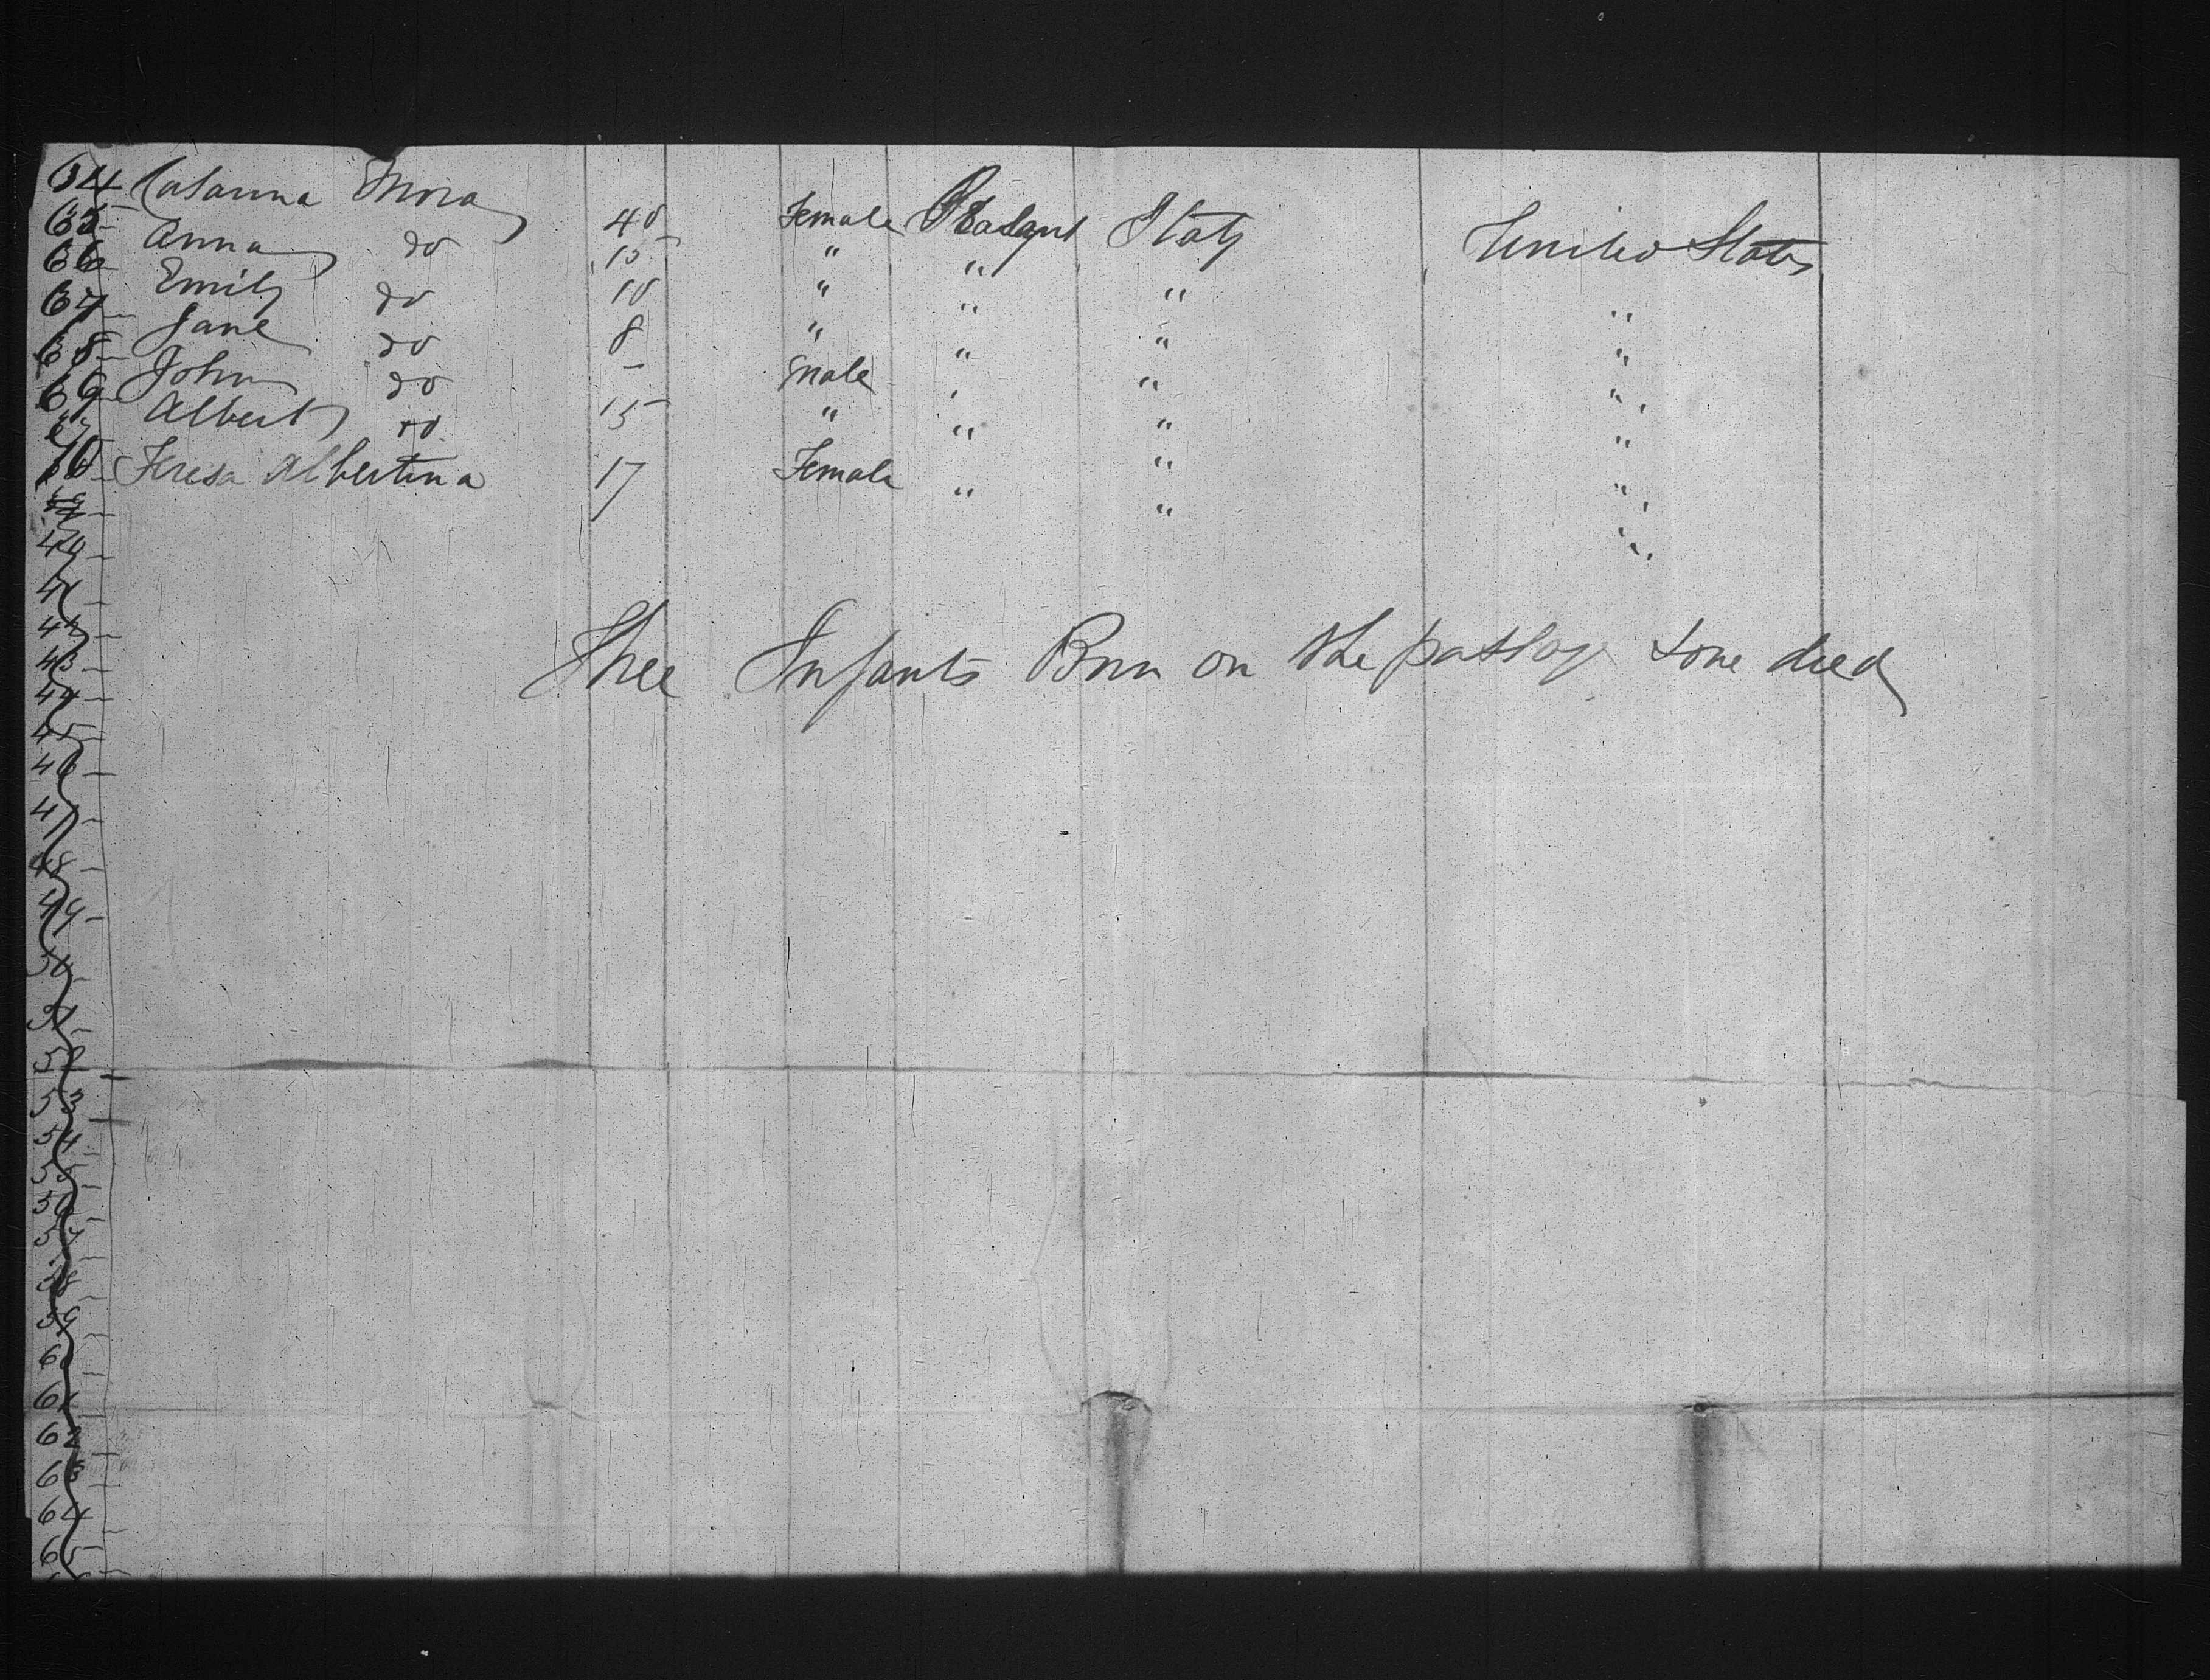 64 Catarina Mora 40 Female Peasant Italy United States
65 Anna do 15 " " " "
66 Emily do 10 " " " "
67 Jane do 8 " " " "
68 John do - Male " " "
69 Albert do 15 " " " "
70 Teresa Albertina 17 Female " " "
40
41
42
Three Infants Born on the passage & one died
43
44
45
46
47
48
49
50
51
52
53
54
55
56
57
58
59
60
61
62
63
64
65